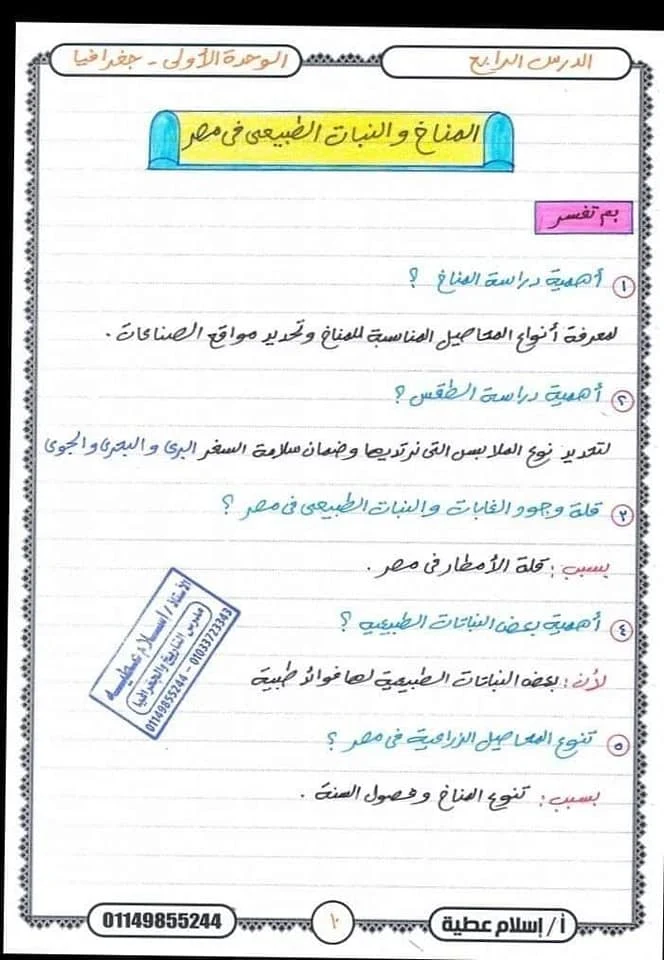 الدرس الرابع
الوحدة الأولى - جغرافيا
المناخ والنبات الطبيعى فى مصر
بم تفسر
١ أهمية دراسة المناخ ؟
لمعرفة أنواع المحاصيل المناسبة للمناخ وتحديد مواقع الصناعات .
٢ أهمية دراسة الطقس ؟
لتحديد نوع الملابس التى نرتديها وضمان سلامة السفر البرى والبحرى والجوى
٣ قلة وجود الغابات والنبات الطبيعى فى مصر ؟
بسبب : قلة الأمطار فى مصر .
٤ أهمية بعض النباتات الطبيعية ؟
لأن : بعض النباتات الطبيعية لها فوائد طبية
٥ تنوع المحاصيل الزراعية فى مصر ؟
بسبب : تنوع المناخ وفصول السنة .
الأستاذ / إسلام عطيه
مدرس التاريخ والجغرافيا
01149855244 - 01033723343
أ / إسلام عطية
١٠
01149855244